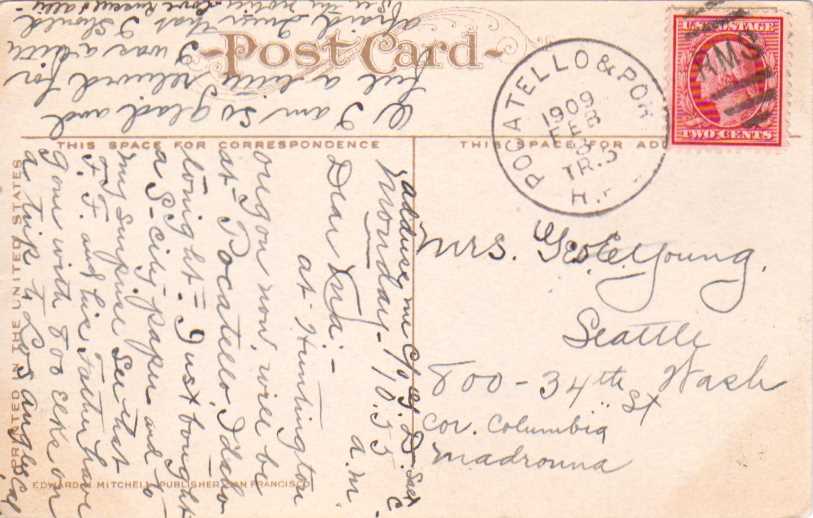 Post Card
THIS SPACE FOR CORRESPONDENCE
THIS SPACE FOR ADD
PRINTED IN THE UNITED STATES
EDWARD H. MITCHELL PUBLISHER SAN FRANCISCO
U.S. POSTAGE
TWO CENTS
POCATELLO & POR
1909
FEB
TR.3
R.M.S
Mrs. Geo. E. Young.
Seattle
800-34th Wash
St
Cor. Columbia
Madronna
address me c/o
Monday-10.55
a.m.
Dear Ina:-
at Huntington
oregon now, will be
at Pocatello, Idaho
tonight- Just bought
a S- city paper and to
my surprise see that
F. F. and his Father have
gone with 800 elks on
a trip to Los Angles Cal.
I am so glad and
feel a little relieved for
I was a little
afraid that I should